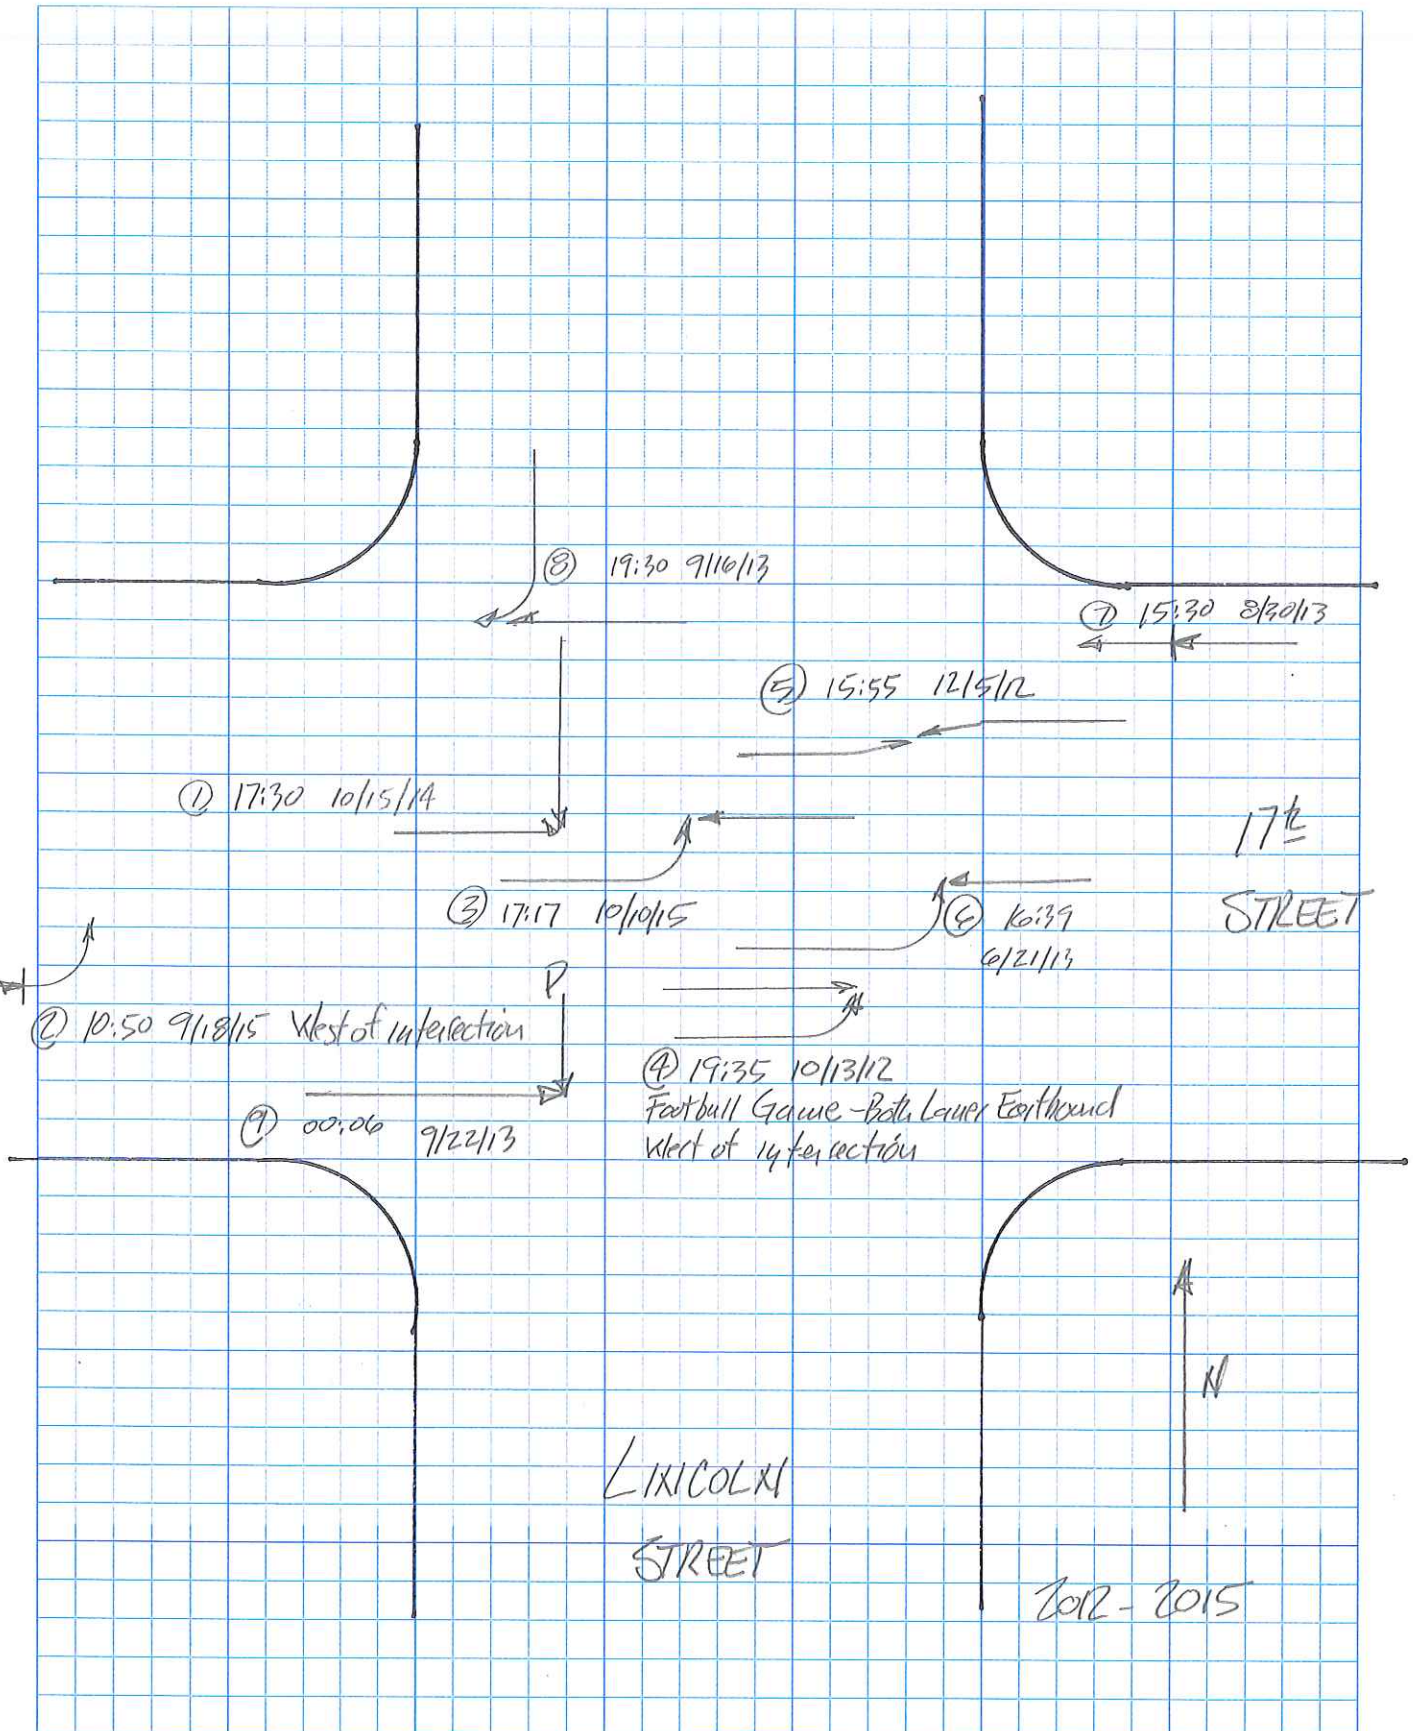 ⑧ 19:30 9/16/13
⑦ 15:30 8/30/13
⑤ 15:55 12/5/12
① 17:30 10/15/14
17th
STREET
③ 17:17 10/10/15
⑥ 16:39
6/21/13
P
② 10:50 9/18/15 West of intersection
④ 19:35 10/13/12
Football Game - Both Lanes Eastbound
West of intersection
⑨ 00:06 9/22/13
N
LINCOLN
STREET
2012 - 2015